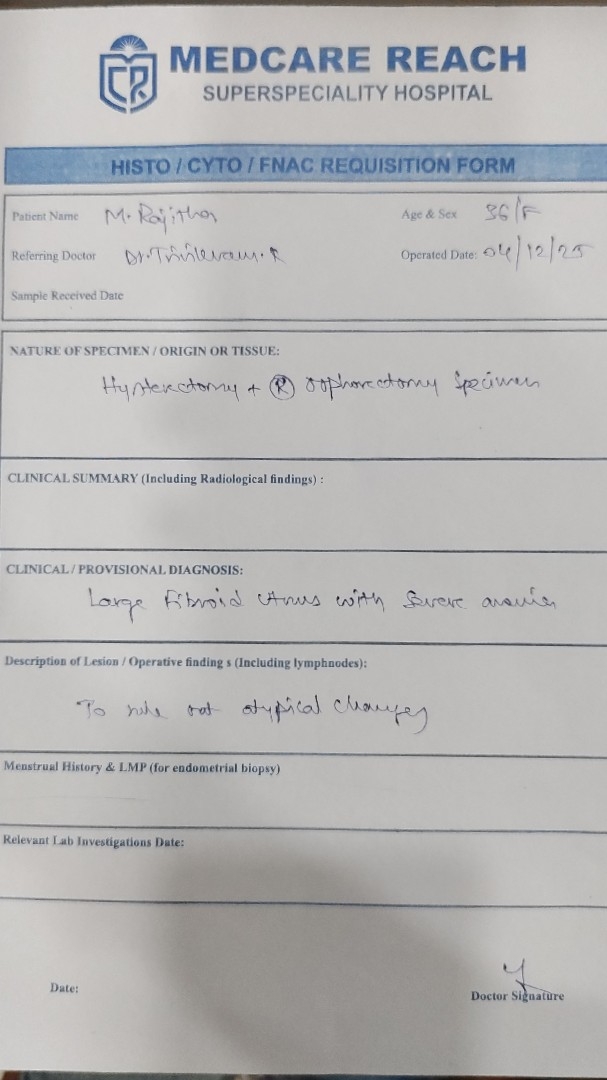 MEDCARE REACH
SUPERSPECIALITY HOSPITAL
HISTO / CYTO / FNAC REQUISITION FORM
Patient Name M. Rajitha Age & Sex 36/F
Referring Doctor Dr. R Operated Date: 04/12/25
Sample Received Date
NATURE OF SPECIMEN / ORIGIN OR TISSUE:
Hysterectomy + (R) oophorectomy specimen
CLINICAL SUMMARY (Including Radiological findings) :
CLINICAL / PROVISIONAL DIAGNOSIS:
Large fibroid uterus with severe anemia
Description of Lesion / Operative finding s (Including lymphnodes):
To rule out atypical changes
Menstrual History & LMP (for endometrial biopsy)
Relevant Lab Investigations Date:
Date:
Doctor Signature